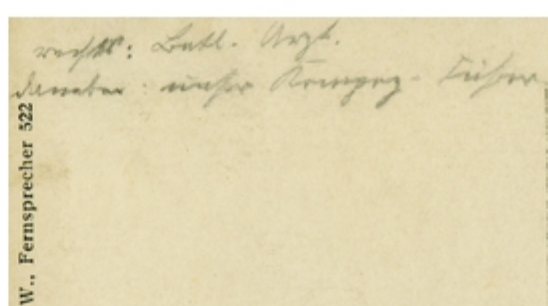 rechts: Batl. Arzt.
daneben: unser Kompag. Führer
W., Fernsprecher 522